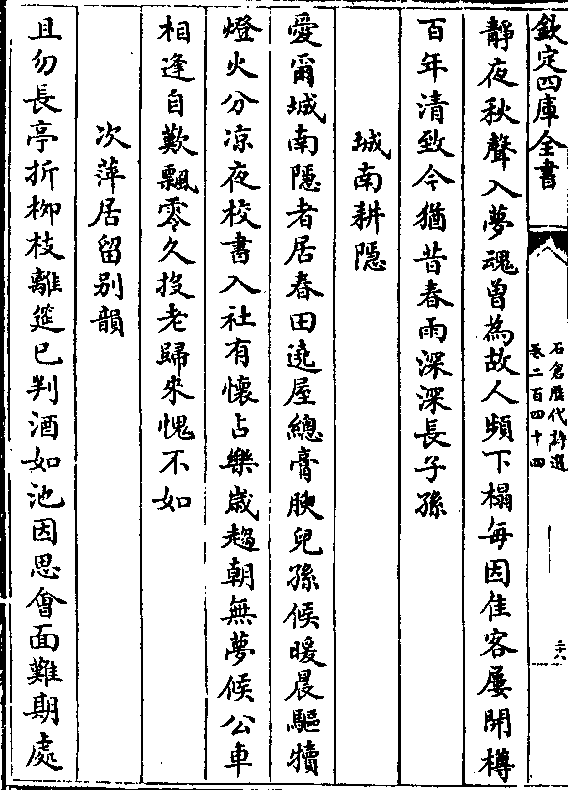 欽定四庫全書
石倉歷代詩選
卷二百四十四
二十八
靜夜秋聲入夢魂曾為故人頻下榻每因佳客屢開樽
百年清致今猶昔春雨深深長子孫
城南耕隱
愛爾城南隱者居春田遶屋總膏腴兒孫候暖晨驅犢
燈火分凉夜校書入社有懷占樂歳趨朝無夢候公車
相逢自歎飄零久投老歸來愧不如
次萍居留别韻
且勿長亭折栁枝離筵已判酒如池因思㑹面難期處